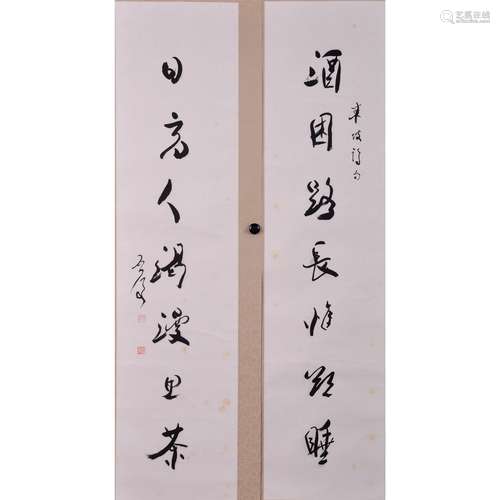 酒困路長惟欲睡
東坡詩句
日高人渴漫思茶
艺狐在线